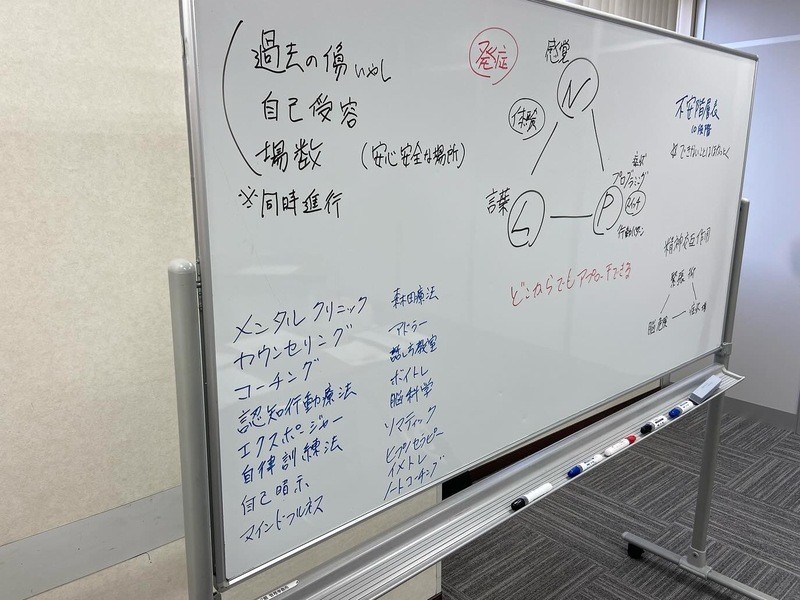 過去の傷いやし
自己受容
場数 (安心安全な場所)
※同時進行
発症
感覚
N
体験
言葉
L
P
症状
プログラミング
スイッチ
行動パターン
どこからでもアプローチできる
不安階層表
10段階
精神交互作用
緊張
メンタルクリニック
カウンセリング
コーチング
認知行動療法
エクスポージャー
自律訓練法
自己暗示
マインドフルネス
森田療法
アドラー
話し方教室
ボイトレ
脳科学
ソマティック
ヒプノセラピー
イメトレ
ノートコーチング